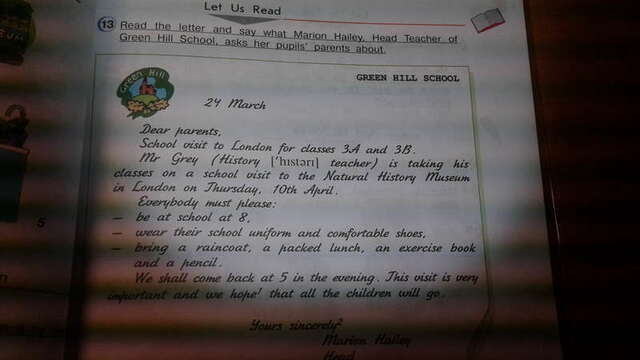 Let Us Read
13 Read the letter and say what Marion Hailey, Head Teacher of
Green Hill School, asks her pupils' parents about.
Green Hill
GREEN HILL SCHOOL
24 March
Dear parents,
School visit to London for classes 3A and 3B.
Mr Grey (History ['hɪstərɪ] teacher) is taking his
classes on a school visit to the Natural History Museum
in London on Thursday, 10th April.
Everybody must please:
– be at school at 8,
– wear their school uniform and comfortable shoes,
– bring a raincoat, a packed lunch, an exercise book
and a pencil.
We shall come back at 5 in the evening. This visit is very
important and we hope¹ that all the children will go.
Yours sincerely²
Marion Hailey
Head
5